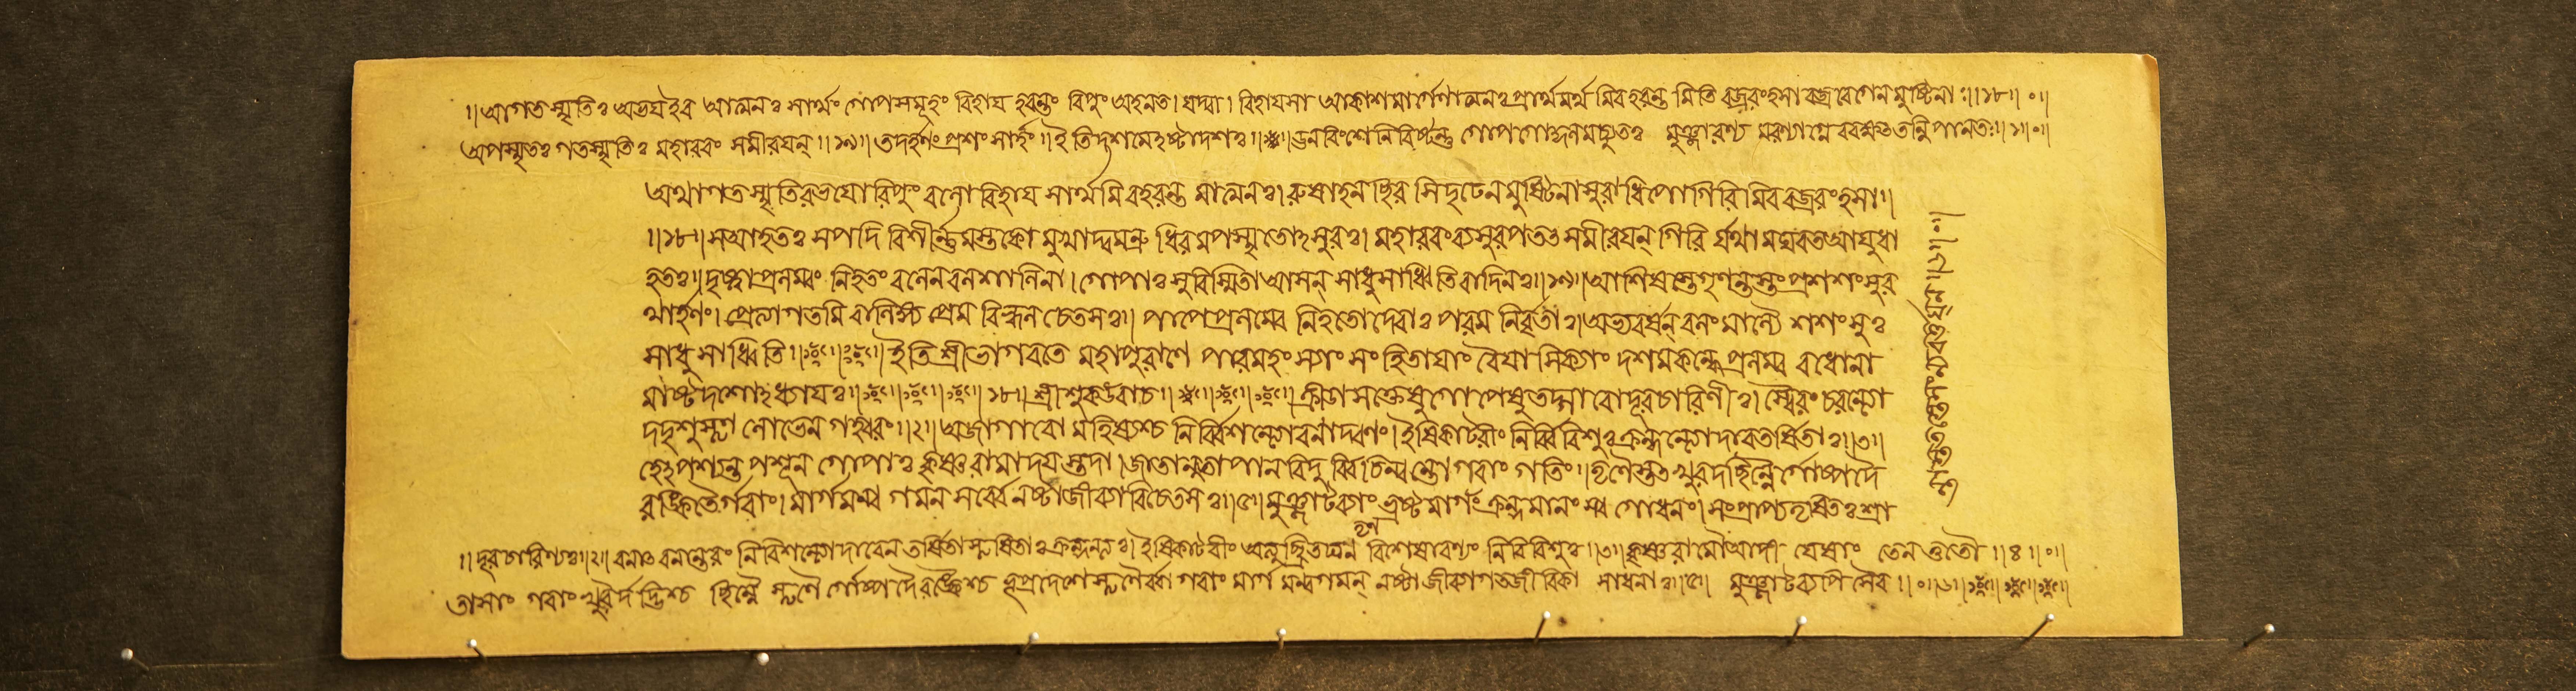 ।।আগতস্মৃতিঃ অভযইব আত্মনঃ সার্থং গোপসমূহং বিহায হরন্তং রিপুং অহনত। যদ্বা। বিহাযসা আকাশমার্গেণাত্মনঃপ্রার্থমর্থ মিবহরন্ত মিতি বজ্ররংহসা বজ্রবেগেনমুষ্টিনা।।১৮।।০।।
অপস্মৃতঃ গতস্মৃতিঃ মহারবং সমীরযন্।।১৯।। তদর্হণং প্রশংসার্হং।।ইতিদশমেহষ্টাদশঃ।। ঊনবিংশেনিবিষ্টন্তু গোপগোধনমচ্যুতঃ মুঞ্জারণ্য
অথাগতস্মৃতিরভযোরিপুং বলোবিহায সার্থমিবহরন্ত মাত্মনঃ। রুষাহনচ্ছির সিদৃঢেনমুষ্টিনাসুরাধিপোগিরিমিববজ্ররংহসা।।
।।১৮।। সআহতঃ সপদি বিশীর্ন্নমস্তকো মুখাদ্বমন্রু ধিরমপস্মৃতোহসুরঃ। মহারবংব্যসুরপতত্ত সমীরযন্ গিরি র্যথা মঘবতআযুধা
হতঃ।। দৃষ্ট্বাপ্রলম্বং নিহতং বলেনবলশালিনা। গোপাঃ সুবিস্মিতাআসন্ সাধুসাধ্বিতিবাদিনঃ।।১৯।। আশিষস্তেগৃণন্তস্তংপ্রশশংসুর
থার্হণং। প্রেত্যাগতমি বালিঙ্গ্য প্রেম বিহ্বল চেতসঃ।। পাপেপ্রলম্বে নিহতোদেবাঃ পরম নির্বৃতাঃ। অভ্যবর্ষন্ বলংমাল্যৈ শশংসুঃ
সাধু সাধ্বিতি।। ইতি শ্রীভাগবতে মহাপুরাণে পারমহংস্যাং সংহিতাযাং বৈযাসিক্যাং দশমস্কন্ধে প্রলম্ব বধোনা
মাষ্টদশোহধ্যাযঃ।। ১৮।। শ্রীশুকউবাচ।। ক্রীডাসক্তেষুগোপেষুতদ্গাবোদূরচারিণীঃ। স্বৈরং চরন্ত্যো
দদৃশুস্তৃণ লোভেন গহ্বরং।।২।। অজাগাবো মহিষ্যশ্চ নির্ব্বিশন্ত্যোবনাদ্বনং। ইষিকাটবীং নির্ব্বিবিশুঃক্রন্দন্ত্যোদাবতর্ষিতাঃ।।৩।।
হেহপশ্যন্ত পশূন গোপাঃ কৃষ্ণরামাদযস্তদা। জাতানুতাপানবিদু র্ব্বিচিন্বন্তোগবাং গতিং।। তৃণৈস্তত খুরদচ্ছিন্নৈর্গোষ্পদৈ
রঙ্কিতৈর্গবাং। মার্গমন্ব গমন সর্ব্বে নষ্টাজীব্যাবিচেতসঃ।।৫।। মুঞ্জাটব্যাং ভ্রষ্টমার্গং ক্রন্দমানং স্ব গোধনং। সংপ্রাপ্যতৃষিতঃশ্রা
।।দূরচারিণ্যঃ।।২।। বনাঞ্চবনান্তরং নিবিশন্ত্যোদাবেন তর্ষিতাস্তৃষিতাঃ ইষিকাটবীং বিশেষারণ্যং নিবিবিশুঃ।।৩।। কৃষ্ণরামৌআদী যেষাং তেন ততৌ।।৪।।০।।
তাসাং গবাং খুরৈর্দদ্ভিশ্চ ছিন্নৈ স্তৃণৈ র্গোষ্পদৈরঙ্কৈশ্চ গবাং মার্গ মন্বগমন্ নষ্টাজীব্যাগতজীবিকা সাধনাঃ।।৫।। মুঞ্জাটব্যপি সৈব।।০।।৬।।